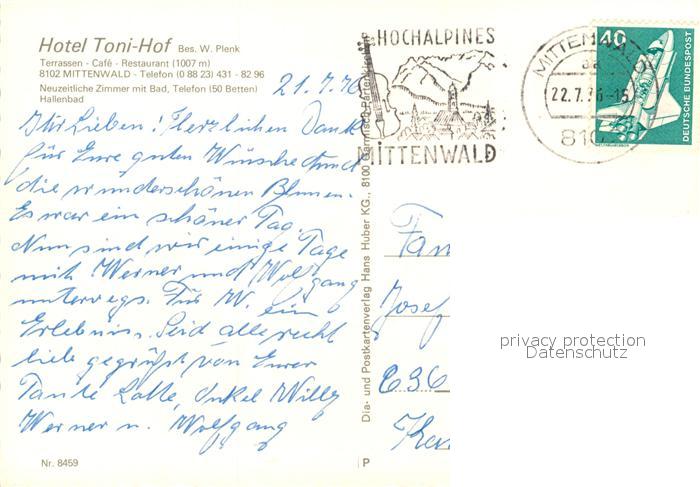 Hotel Toni-Hof Bes. W. Plenk
Terrassen - Café - Restaurant (1007 m)
8102 MITTENWALD - Telefon (0 88 23) 431 - 82 96
Neuzeitliche Zimmer mit Bad, Telefon (50 Betten)
Hallenbad
21.7.76
Ihr Lieben! Herzlichen Dank
für Eure guten Wünsche und
die wunderschönen Blumen.
Es war ein schöner Tag.
Nun sind wir einige Tage
mit Werner und Wolfgang
unterwegs. Für W. ein
Erlebnis. Seid alle recht
lieb gegrüßt von Eurer
Tante Lotte, Onkel Willy
Werner u. Wolfgang
Nr. 8459
P
Dia- und Postkartenverlag Hans Huber KG., 8100 Garmisch-Partenkirchen
HOCHALPINES
MITTENWALD
MITTENWALD
22.7.76-15
810
40
DEUTSCHE BUNDESPOST
Fam
Josef
636
privacy protection
Datenschutz